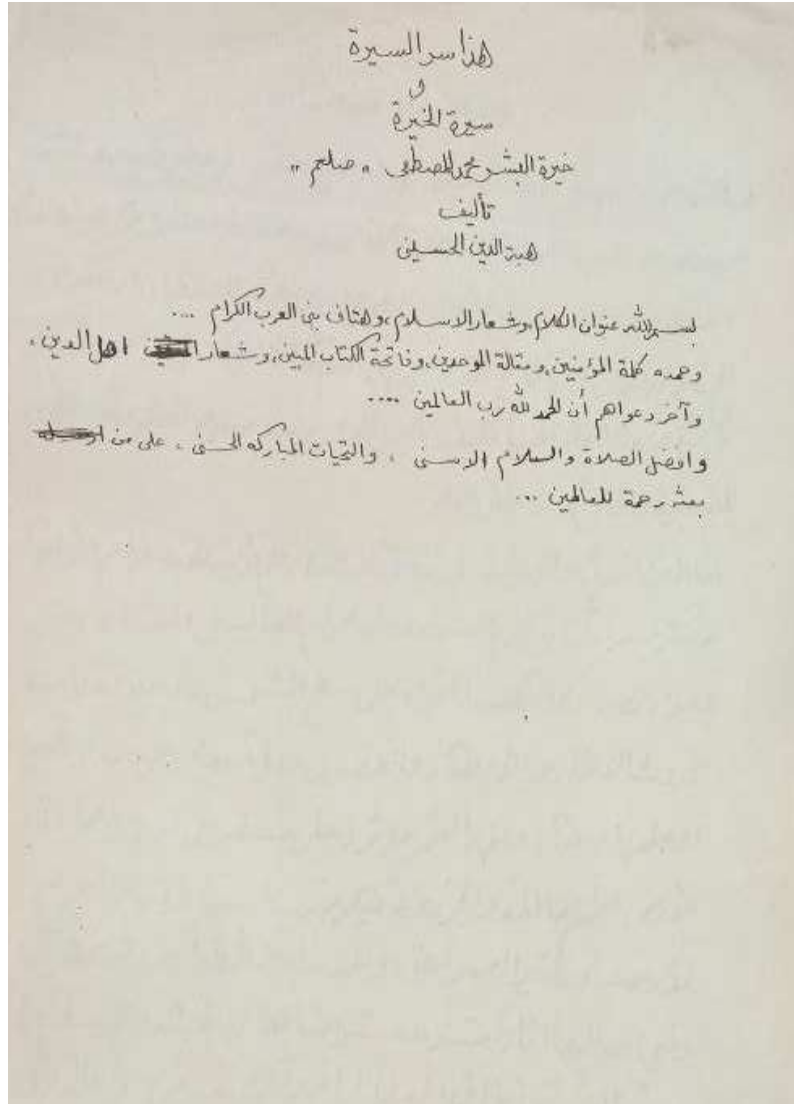 هذا سر السيرة
و
سيرة الخيرة
خيرة البشر محمد المصطفى " صلعم "
تأليف
هبة الدين الحسيني
بسم الله عنوان الكلام، وشعار الاسلام، وهتاف بني العرب الكرام ....
وحمده كلمة المؤمنين، ومقالة الموحدين، وفاتحة الكتاب المبين، وشعار اهل الدين،
وآخر دعواهم أن الحمد لله رب العالمين ....
وافضل الصلاة والسلام الاسنى ، والتحيات المباركه الحسنى ، على من
بعثه رحمة للعالمين ...